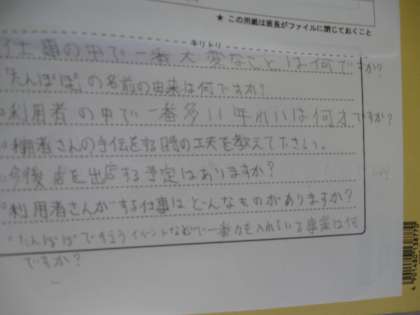 ★ この用紙は班長がファイルに閉じておくこと
キリトリ
仕事の中で一番大変なことは何ですか?
"たんぽぽ"の名前の由来は何ですか?
利用者の中で一番多い年れいは何才ですか?
利用者さんの手伝をする時の工夫を教えて下さい。
今後店を出店する予定はありますか?
利用者さんがする仕事はどんなものがありますか?
"たんぽぽ"で行うイベントなどで一番力を入れている事業は何
ですか?